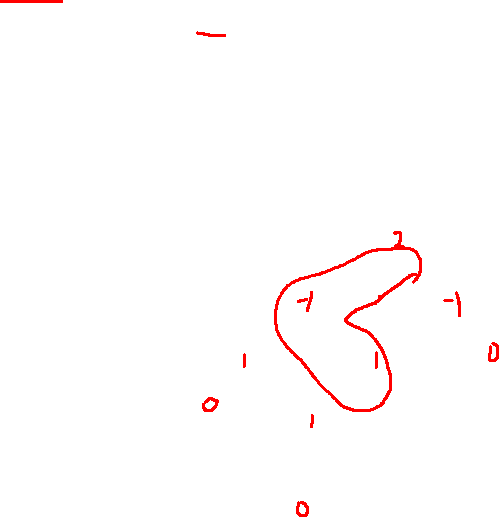 2
-1 -1
1 1 0
0
1
0